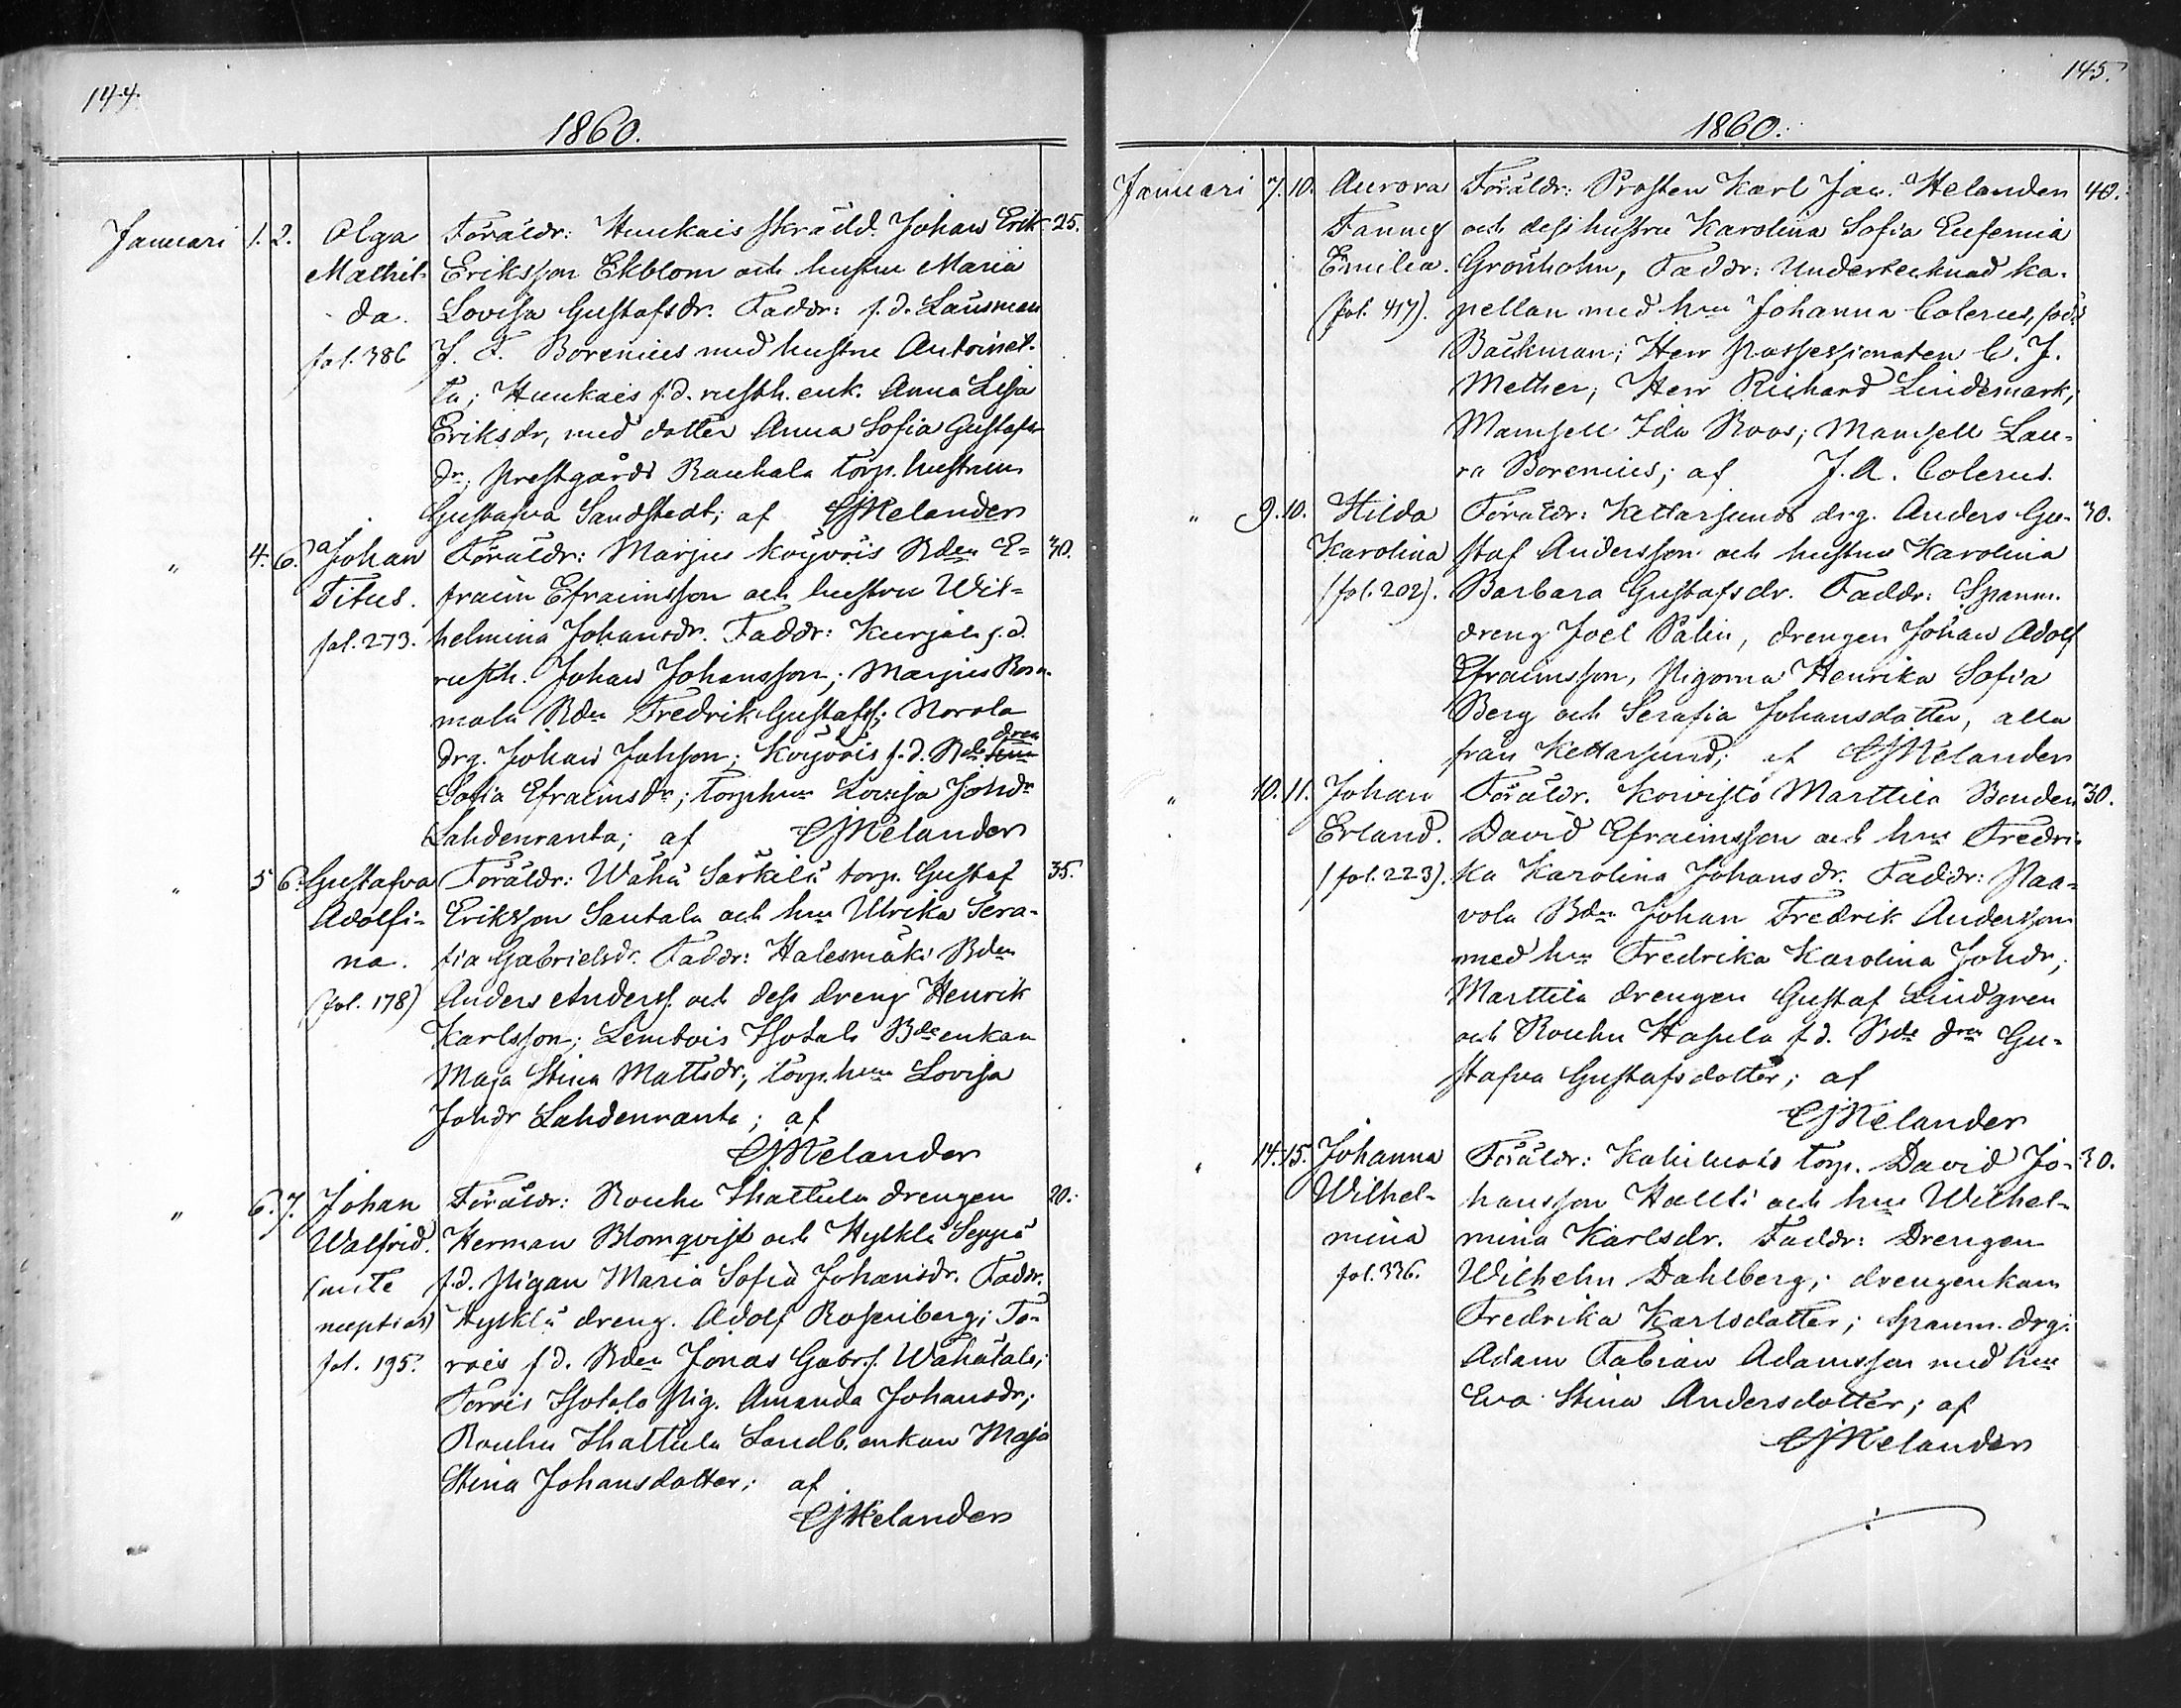 144.
1860.
Januari 1. 2. Olga Föräldr: Hunkais skrädd. Johan Erik 25.
Mathil- Eriksson Ekblom och hustru Maria
da. Lovisa Gustafsdr. Faddr: f.d. Länsman
fol. 386 J. F. Borenius med hustru Antoinet-
ta; Hunkais f.d. rusth. enk. Anna Lisa
Eriksdr, med dotter Anna Sofia Gustafs
dr; Prestgårds Rauhala torp. hustrun
Gustafva Sandstedt; af CJMelander
" 4. 6. Johan Föräldr: Marjus Köyvöis Bden E- 40.
Titus. fraim Efraimsson och hustru Wil-
fol. 273. helmina Johansdr. Faddr: Kurjala f.d.
rusth. Johan Johansson; Marjus
mala Bdn Fredrik Gustafss; Norola
drg. Johan Johsson; Köyvöis f.d. Bde dren
Sofia Efraimsdr; torp hun Lovisa Johdr
Lahdenranta; af CJMelander
" 5 6. Gustafva Föräldr: Wähä Särkilä torp. Gustaf 35.
Adolfi- Eriksson Santala och hun Ulrika Sera-
na. fia Gabrielsdr. Faddr: Halesmäki Bden
(fol. 178) Anders Anderss. och dess dreng Henrik
Karlsson; Lembois Isotalo Bde enkan
Maja Stina Mattsdr; torp. hun Lovisa
Johdr Lahdenranta; af
CJMelander
" 6. 7. Johan Föräldr: Rouhu Ihattula drengen 20.
Walfrid. Herman Blomqvist och Hylklä Seppä
(ante f.d. Pigan Maria Sofia Johansdr. Faddr.
nuptias) Hylklä dreng. Adolf Rosenberg; To-
fol. 195. rois f.d. Bden Jonas Gabr.s. Wähätalo;
Torois Isotalo Pig. Amanda Johansdr;
Rouhu Ihattula Landb. enkan Maja
Stina Johansdotter; af
CJMelander
145.
1860.
Januari 7. 10. Aurora Föräldr: Prosten Karl Jac. Helander 40.
Fanny och dess hustru Karolina Sofia Eufemia
Emilia. Grönholm, Faddr: Undertecknad ka-
(fol. 417). pellan med hun Johanna Colerus, född
Bäckman; Herr Possessionaten C. J.
Mether; Herr Richard Lindemark;
Mamsell Ida Roos; Mamsell Lau-
ra Borenius; af J. A. Colerus.
" 9. 10. Hilda Föräldr: Kettarsunds drg. Anders Gu- 30.
Karolina staf Andersson och hustru Karolina
(fol. 202). Barbara Gustafsdr. Faddr: Spanm.
dreng Joel Palin, drengen Johan Adolf
Efraimsson, Pigorna Henrika Sofia
Berg och Serafia Johansdotter, alla
från Kettarsund; af CJMelander
" 10. 11. Johan Föräldr. Koivisto Marttila Bonden 30.
Erland. David Efraimsson och hun Fredri-
(fol. 223). ka Karolina Johansdr. Faddr: Paa-
vola Bdn Johan Fredrik Andersson
med hun Fredrika Karolina Johdr;
Marttila drengen Gustaf Lindgren
och Rouhu Hasula f.d. Bde dren Gu-
stafva Gustafsdotter; af
CJMelander
" 14. 15. Johanna Föräldr: Kahiluoto torp. David Jo- 30.
Wilhel- hansson Hallti och hun Wilhel-
mina mina Karlsdr. Faddr: Drengen
fol. 336. Wilhelm Dahlberg; drengenkan
Fredrika Karlsdotter; spanm. drg.
Adam Fabian Adamsson med hun
Eva Stina Andersdotter; af
CJMelander